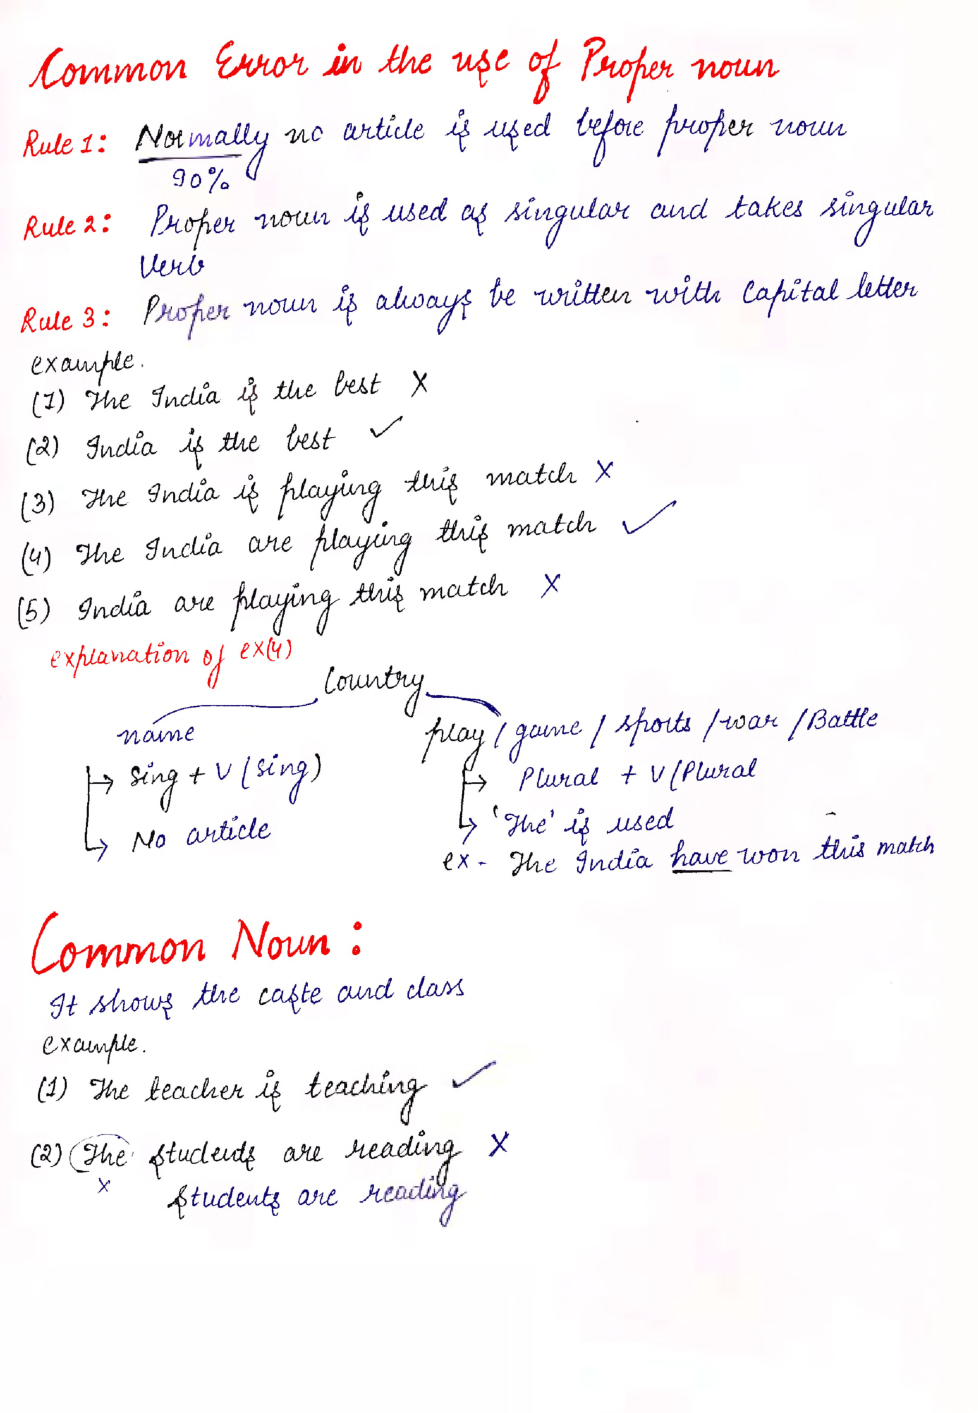 Common Error in the use of Proper noun
Rule 1: Normally no article is used before proper noun
90%
Rule 2: Proper noun is used as singular and takes singular
Verb
Rule 3: Proper noun is always be written with Capital letter
example.
(1) The India is the best X
(2) India is the best ✓
(3) The India is playing this match X
(4) The India are playing this match ✓
(5) India are playing this match X
explanation of ex(4)
Country
name play / game / sports / war / Battle
→ Sing + V (sing) → Plural + V (Plural
→ No article → 'The' is used
ex - The India have won this match
Common Noun :
It shows the caste and class
example.
(1) The teacher is teaching ✓
(2) The students are reading X
X students are reading